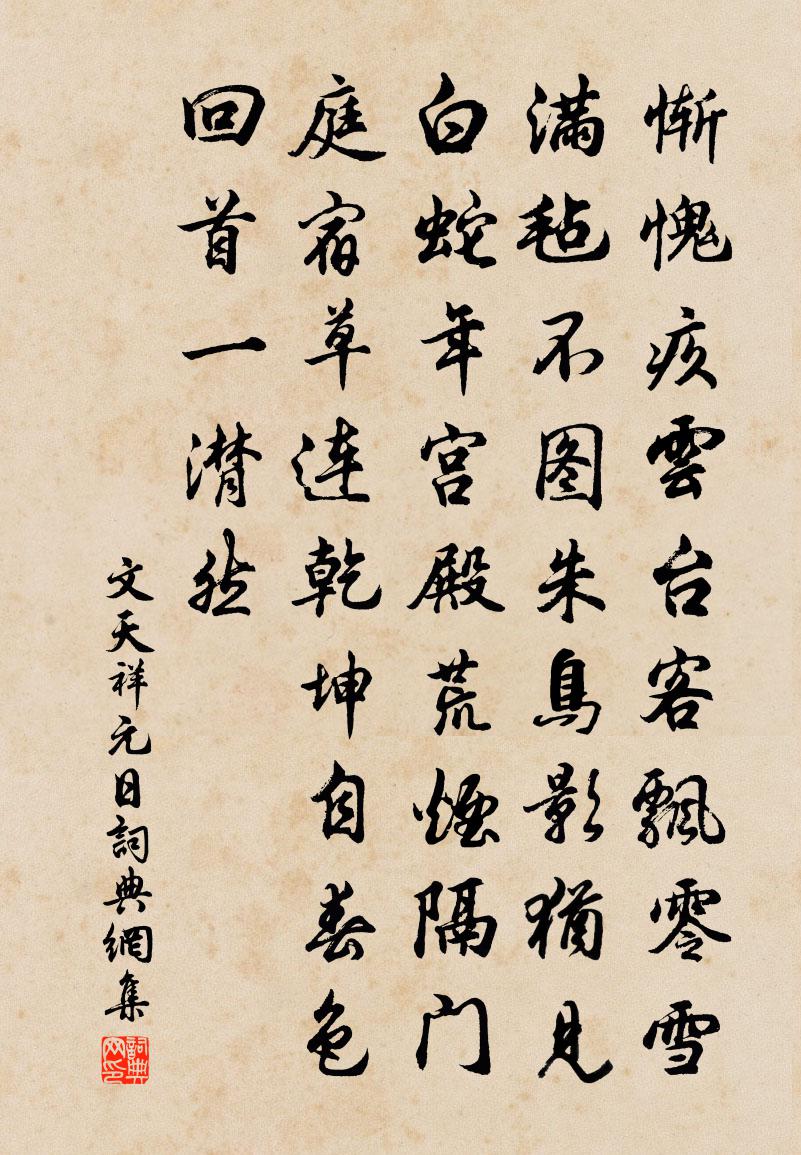 慚愧疾雲台客飄零雪
滿毡不图朱鳥影猶見
白蛇年宫殿荒煙隔门
庭宿草連乾坤自春色
回首一潸然
文天祥元日詞典網集
詞典网印